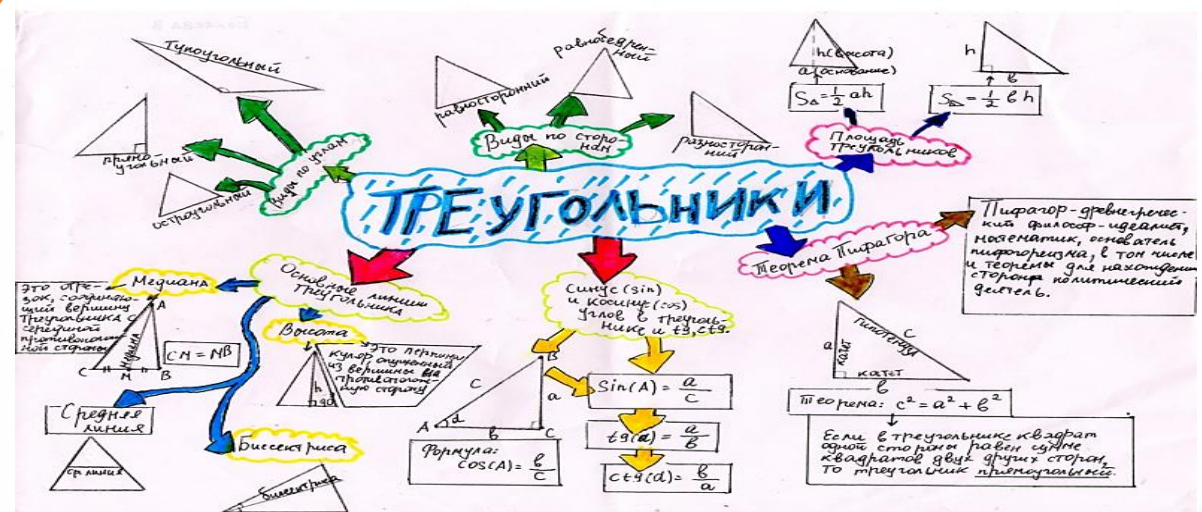 ТРЕУГОЛЬНИКИ
Виды по углам
Тупоугольный
прямо-
угольный
остроугольный
Виды по сторо-
нам
равносторонний
равнобедрен-
ный
разносторон-
ний
Площадь
треугольников
h(высота)
a(основание)
S△ = 1/2 ah
h
в
S = 1/2 вh
Теорема Пифагора
Пифагор-древнегречес-
кий философ-идеалист,
математик, основатель
пифогореизма, в том числе
и теоремы для нахождения
стороны политический
деятель.
a
катет
гипотенуза
c
катет
в
Теорема: c² = a² + в²
Если в треугольнике квадрат
одной стороны равен сумме
квадратов двух других сторон,
то треугольник прямоугольный.
Синус (sin)
и косинус (cos)
углов в треуголь-
нике и tg, ctg.
B
c
a
A
d
в
C
Формула:
cos(A) = в/c
Sin(A) = a/c
tg(d) = a/в
ctg(d) = в/a
Основные линии
треугольника
Медиана
это отре-
зок, соединяю-
щий вершину
треугольника с
серединой
противополож-
ной стороны
A
медиана
C
M
B
CM = MB
Высота
h
90
это перпенди-
куляр, опущенный
из вершины на
противополож-
ную сторону
Средняя
линия
ср. линия
Биссектриса
биссектриса